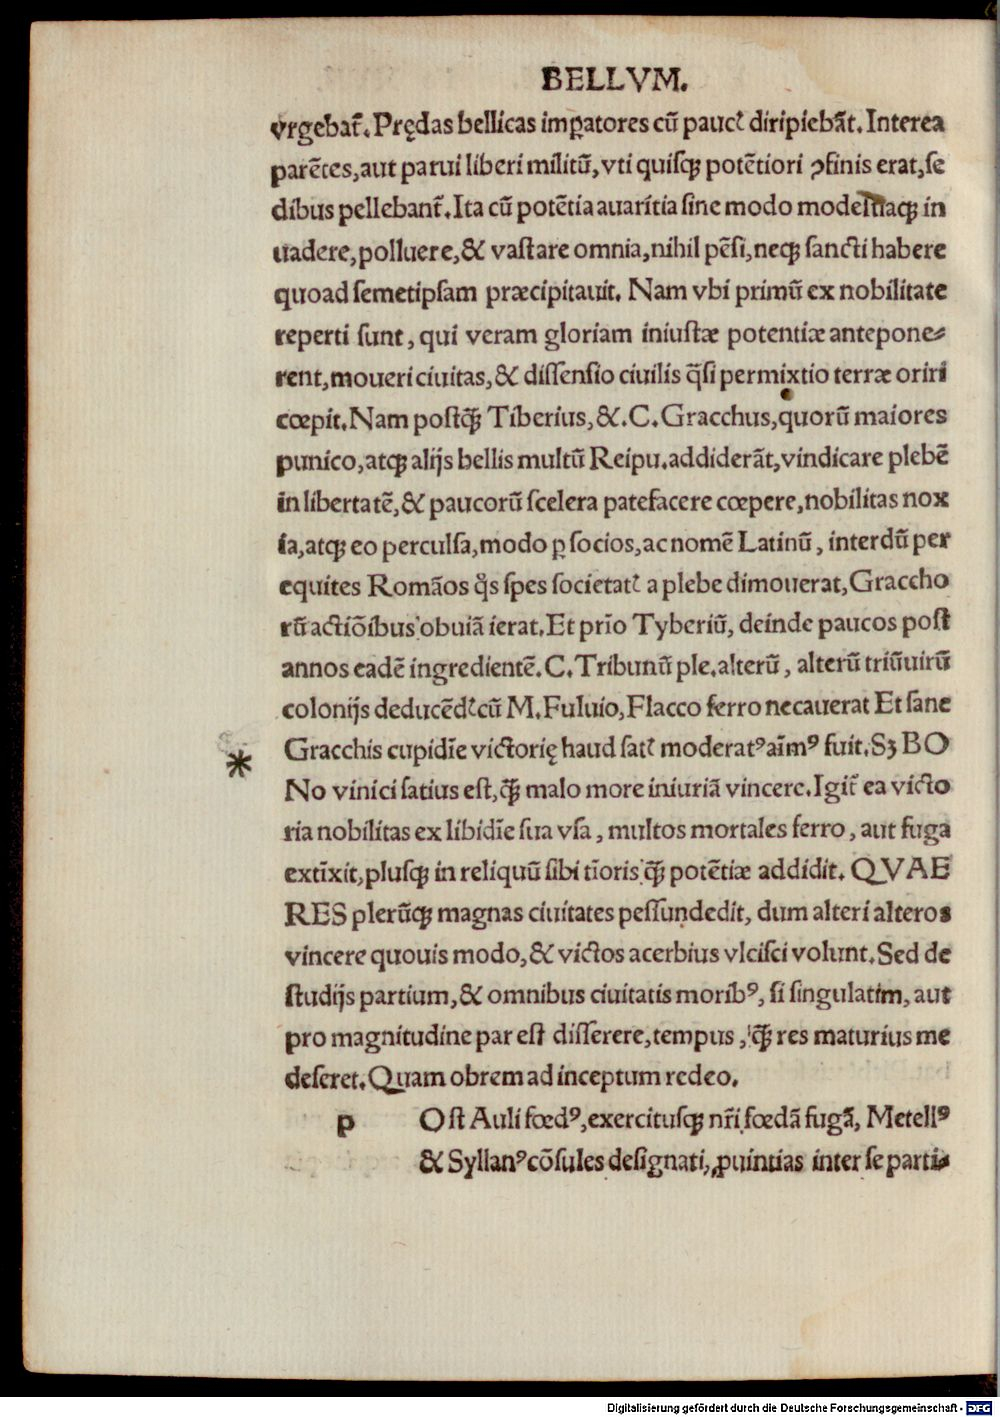 BELLVM.
vrgebat̃.Prędas bellicas imꝑatores cũ pauct̉ diripiebãt.Interea
parẽtes,aut parui liberi militũ,vti quiſqꝫ potẽtiori ꝯfinis erat,ſe
dibus pellebant̃.Ita cũ potẽtia auaritia ſine modo modeſtiaqꝫ in
uadere,polluere,& vaſtare omnia,nihil pẽſi,neqꝫ ſancti habere
quoad ſemetipſam præcipitauit. Nam vbi primũ ex nobilitate
reperti ſunt, qui veram gloriam iniuſtæ potentiæ antepone⸗
rent,moueri ciuitas,& diſſenſio ciuilis q̃ſi permixtio terræ oriri
cœpit.Nam poſtqꝫ̃ Tiberius,&.C.Gracchus,quorũ maiores
punico,atqꝫ alijs bellis multũ Reipu.addiderãt,vindicare plebẽ
in libertatẽ,& paucorũ ſcelera patefacere cœpere,nobilitas nox
ia,atqꝫ eo perculſa,modo ꝑ ſocios,ac nomẽ Latinũ, interdũ per
equites Romãos q̃s ſpes ſocietatꝭ a plebe dimouerat,Graccho
rũ actiõibus obuiã ierat.Et prĩo Tyberiũ, deinde paucos poſt
annos eadẽ ingredientẽ.C.Tribunũ ple.alterũ, alterũ triũuirũ
colonijs deducẽdꝭ cũ M.Fuluio,Flacco ferro necauerat Et ſane
* Gracchis cupidĩe victorię haud ſatꝭ moderatꝰ aĩmꝰ fuit.Sꝫ BO
No vinici ſatius eſt,qꝫ̃ malo more iniuriã vincere.Igit̃ ea victo
ria nobilitas ex libidĩe ſua vſa, multos mortales ferro, aut fuga
extĩxit,pluſqꝫ in reliquũ ſibi tĩoris qꝫ̃ potẽtiæ addidit. QVAE
RES plerũqꝫ magnas ciuitates peſſundedit, dum alteri alteros
vincere quouis modo,& victos acerbius vlciſci volunt.Sed de
ſtudijs partium,& omnibus ciuitatis moribꝰ, ſi ſingulatim, aut
pro magnitudine par eſt diſſerere,tempus, qꝫ̃ res maturius me
deſeret.Quam obrem ad inceptum redeo.
p Oſt Auli fœdꝰ,exercituſqꝫ nr̃i fœdã fugã, Metellꝰ
& Syllanꝰ cõſules deſignati, ꝓuintias inter ſe parti⸗
Digitalisierung gefördert durch die Deutsche Forschungsgemeinschaft - DFG